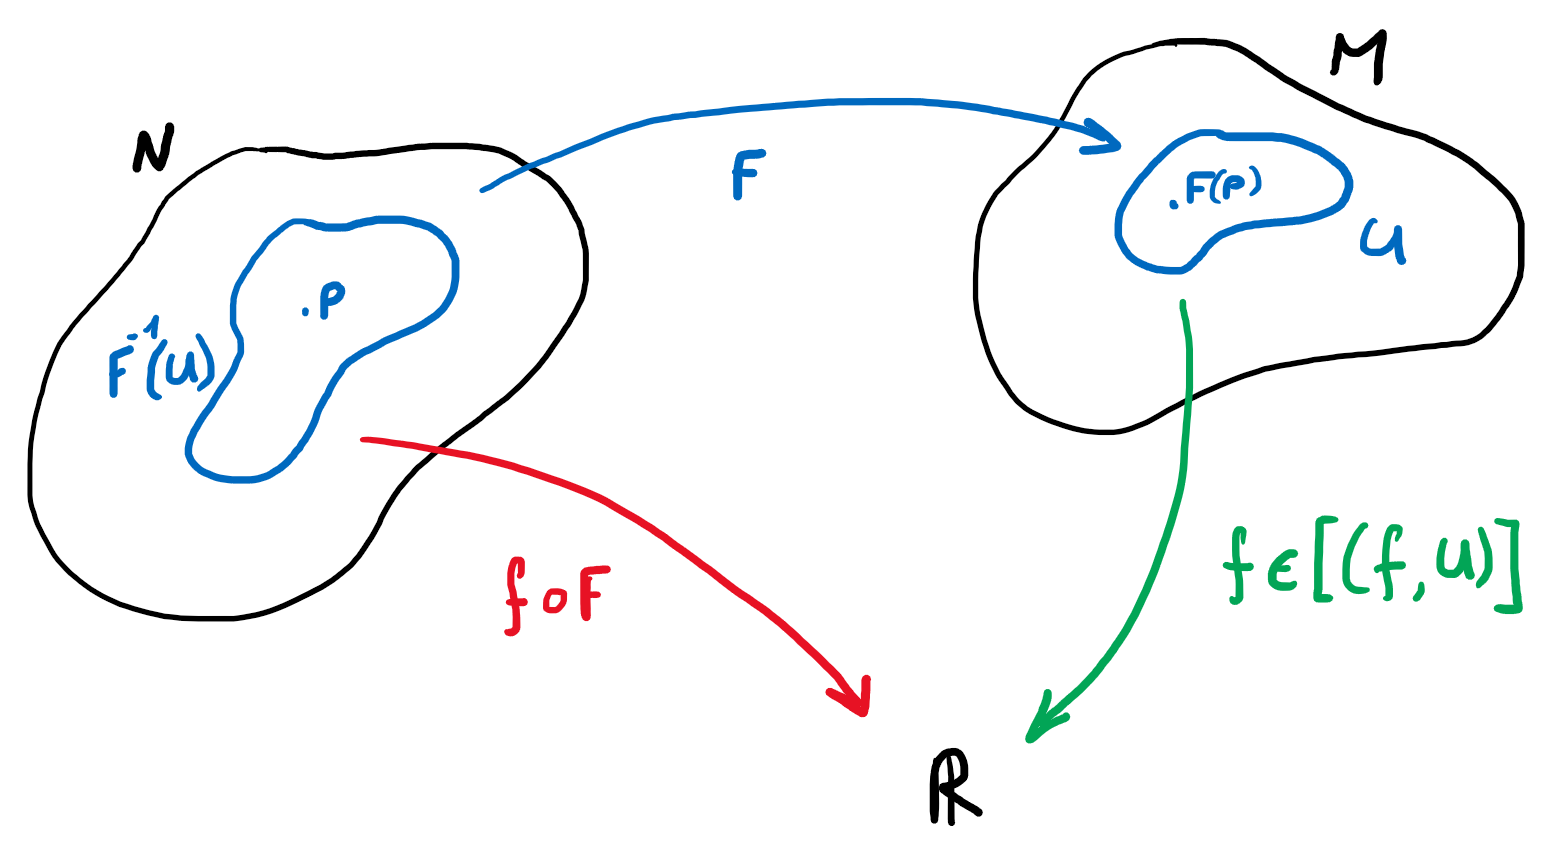 N
M
F
F(p)
U
.p
F⁻¹(U)
f∘F
f∈[(f,U)]
ℝ